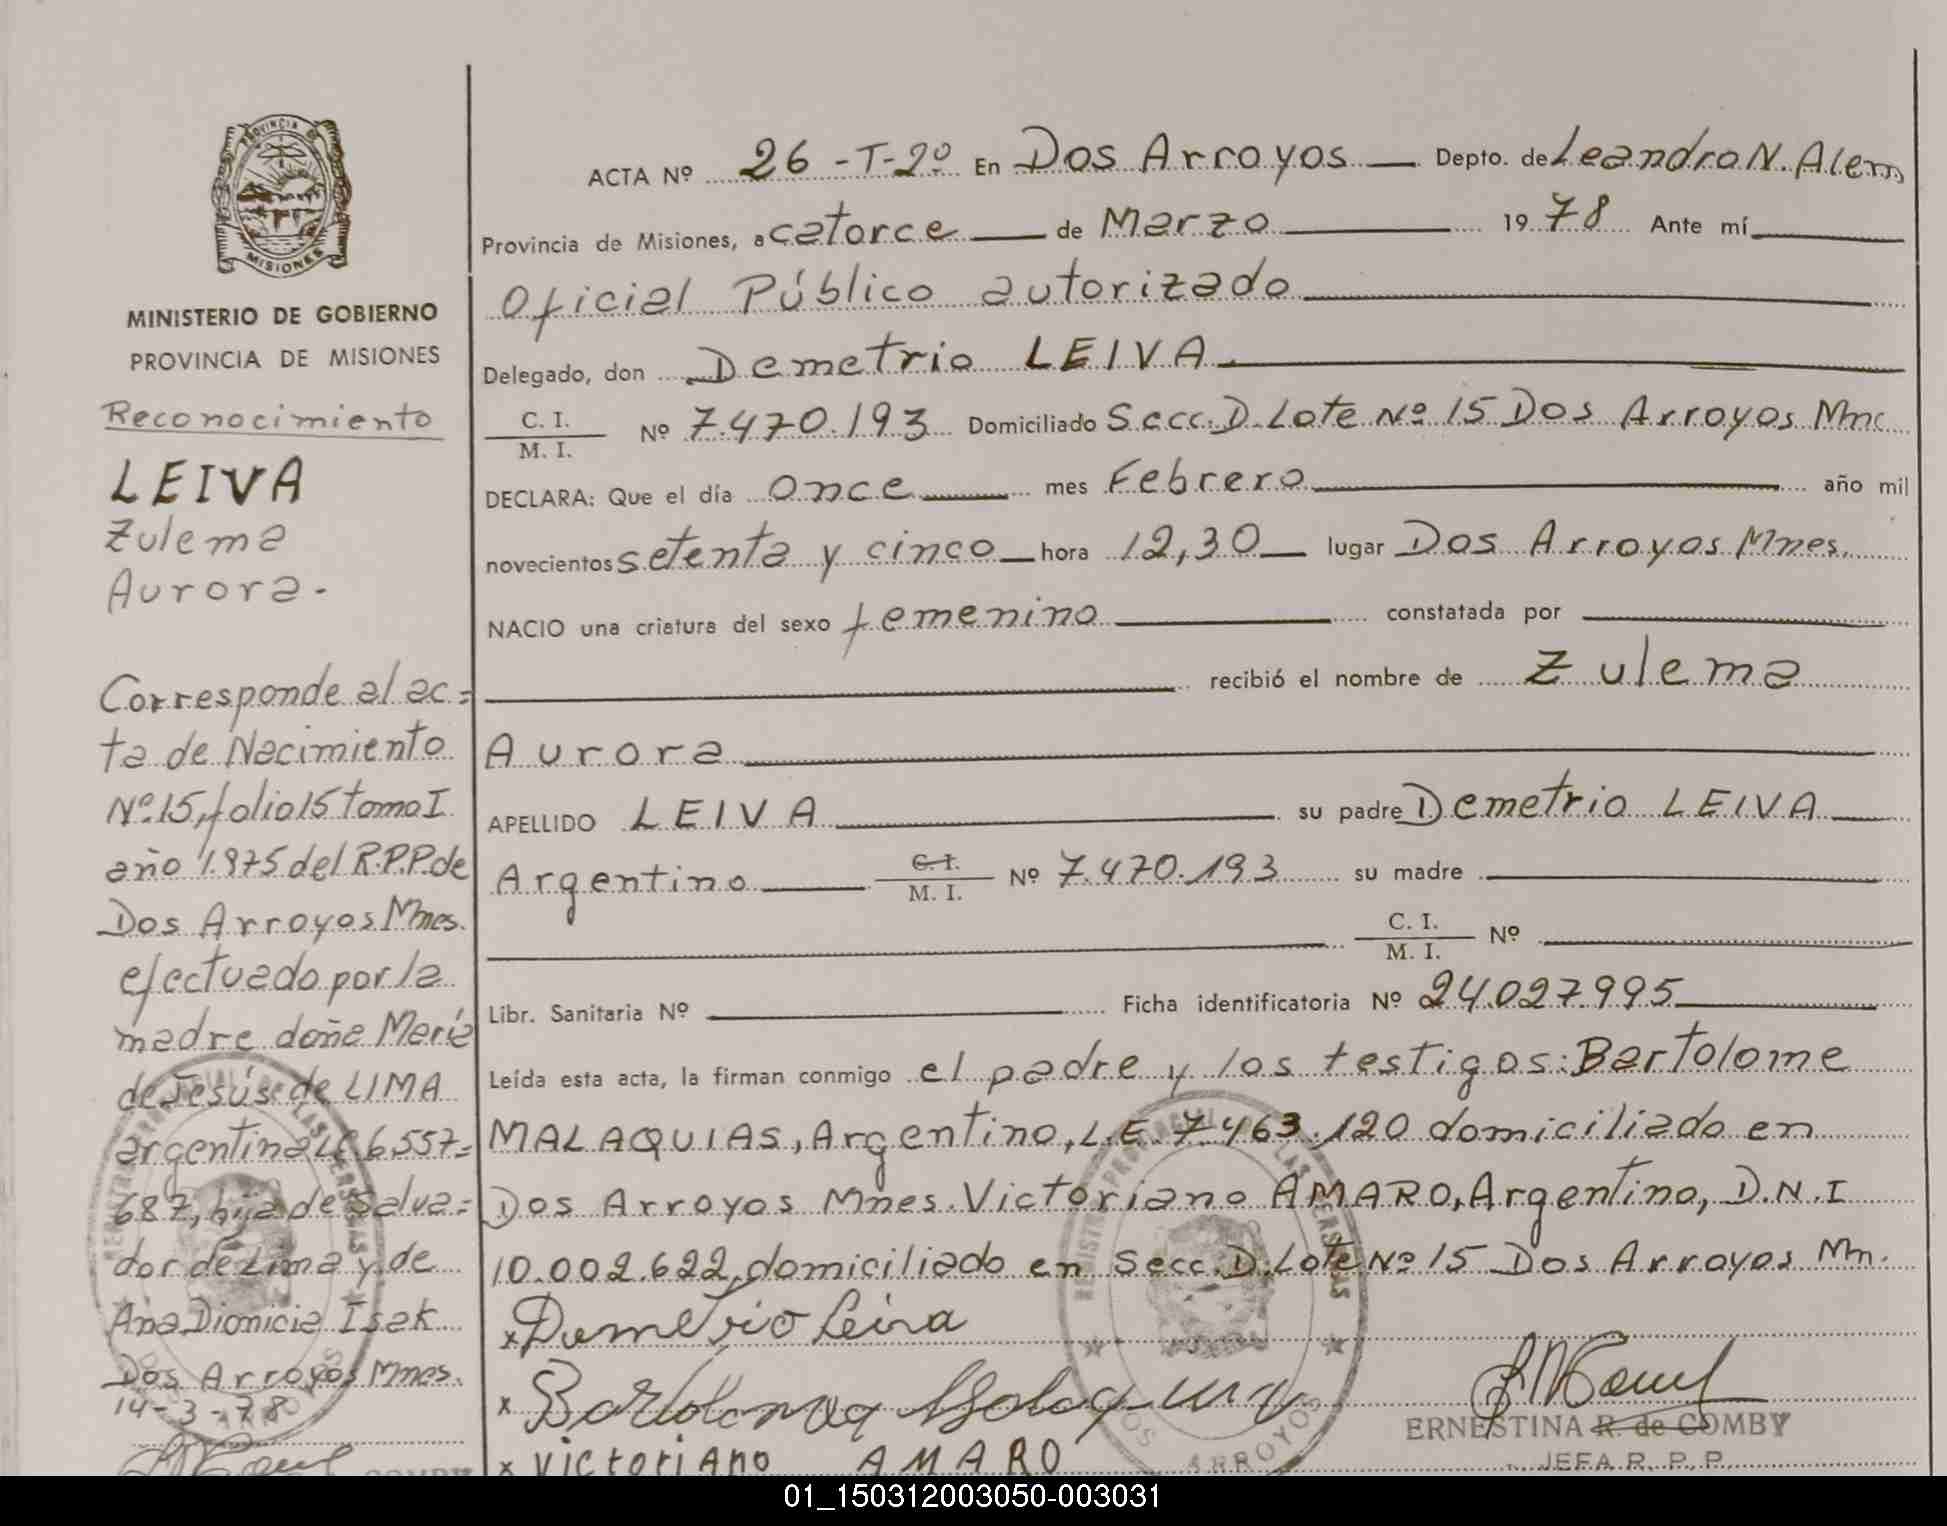 PROVINCIA DE
MISIONES
MINISTERIO DE GOBIERNO
PROVINCIA DE MISIONES
Reconocimiento
LEIVA
Zulema
Aurora.-
Corresponde al ac=
ta de Nacimiento
Nº.15, folio 15 tomo I
año 1.975 del R.P.P. de
Dos Arroyos Mnes.
efectuado por la
madre doña María
de Jesús de LIMA
argentina L.C. 6.557=
687, hija de Salva=
dor de Lima y de
Ana Dionicia Isak
Dos Arroyos Mnes.
14-3-78
ACTA Nº 26-T-2º En Dos Arroyos Depto. de Leandro N. Alem
Provincia de Misiones, a catorce de Marzo 1978 Ante mí
Oficial Público autorizado
Delegado, don Demetrio LEIVA
C. I.
M. I. Nº 7.470.193 Domiciliado Secc. D. Lote Nº 15 Dos Arroyos Mnc
DECLARA: Que el día once mes Febrero año mil
novecientos setenta y cinco hora 12,30 lugar Dos Arroyos Mnes.
NACIO una criatura del sexo femenino constatada por
recibió el nombre de Zulema
Aurora
APELLIDO LEIVA su padre Demetrio LEIVA
Argentino C. I.
M. I. Nº 7.470.193 su madre
C. I.
M. I. Nº
Libr. Sanitaria Nº Ficha identificatoria Nº 24.027995
Leída esta acta, la firman conmigo el padre y los testigos: Bartolome
MALAQUIAS, Argentino, L.E. 7.463.120 domiciliado en
Dos Arroyos Mnes. Victoriano AMARO, Argentino, D.N.I
10.002.622, domiciliado en Secc. D. Lote Nº 15 Dos Arroyos Mn.
x Demetrio Leiva
x
x Victoriano AMARO
ERNESTINA R. de COMBY
JEFA R. P. P.
01_150312003050-003031